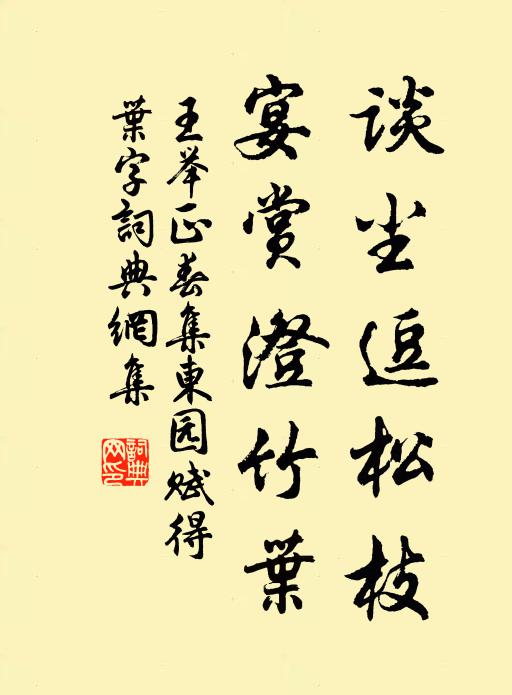 谈尘逗松枝
宴赏澄竹葉
王举正春集東园赋得
葉字詞典網集
詞典网印